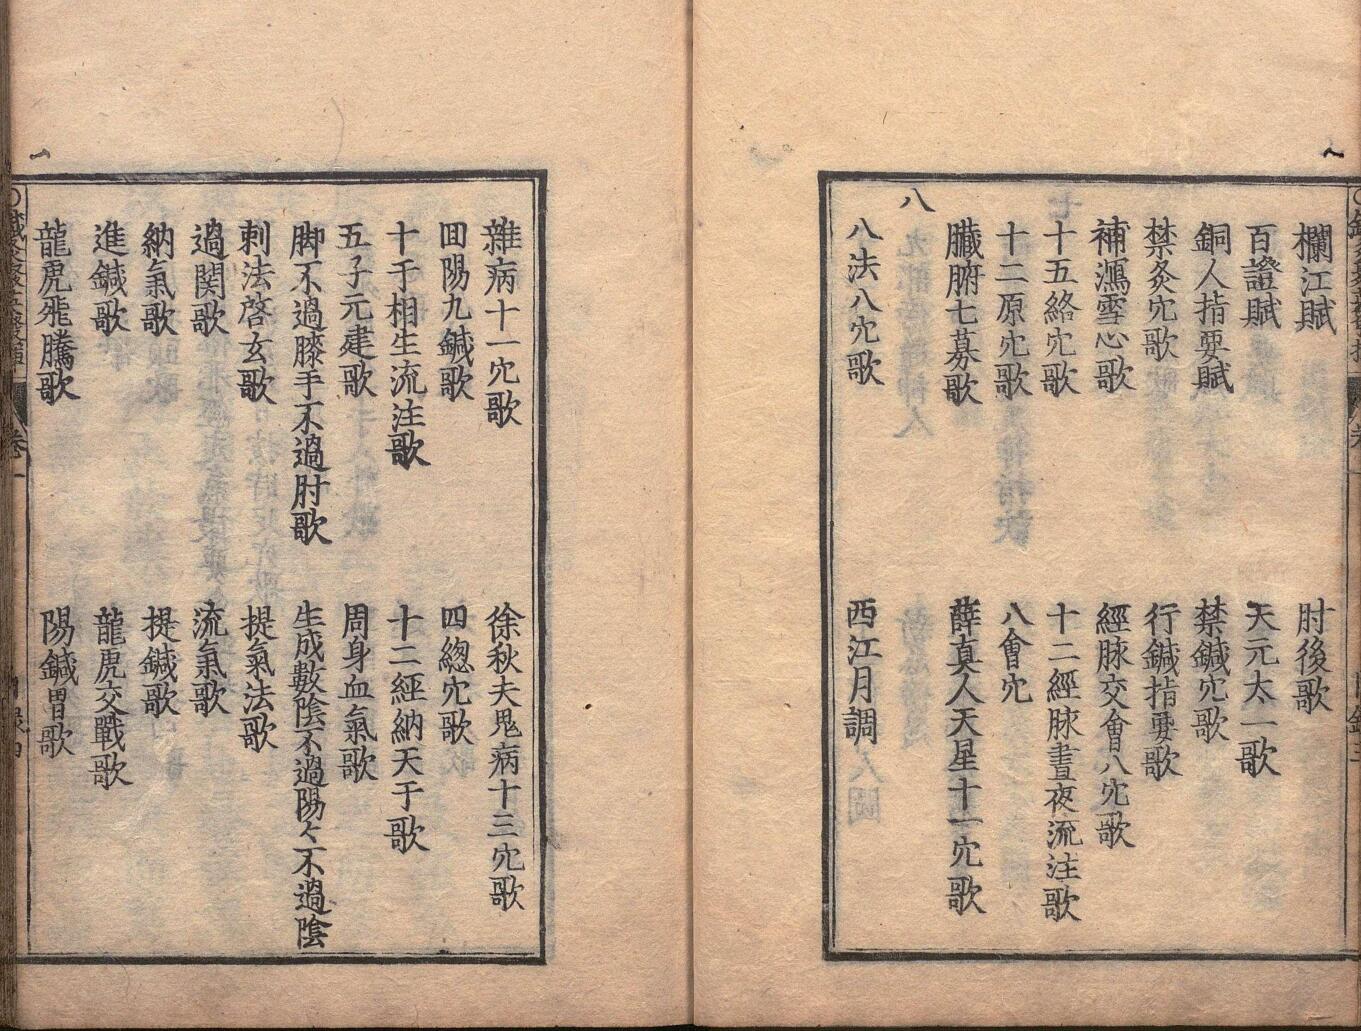 欄江賦　肘後歌
百證賦　天元太一歌
銅人指要賦　禁鍼穴歌
禁灸穴歌　行鍼指要歌
補瀉雪心歌　經脉交會八穴歌
十五絡穴歌　十二經脉晝夜流注歌
十二原穴歌　八會穴
臟腑七募歌　薛真人天星十一穴歌
八
八法八穴歌　西江月調
雜病十一穴歌　徐秋夫鬼病十三穴歌
回陽九鍼歌　四總穴歌
十干相生流注歌　十二經納天干歌
五子元建歌　周身血氣歌
脚不過膝手不過肘歌　生成數陰不過陽々不過陰
刺法啓玄歌　提氣法歌
過関歌　流氣歌
納氣歌　提鍼歌
進鍼歌　龍虎交戰歌
龍虎飛騰歌　陽鍼冐歌
卷一